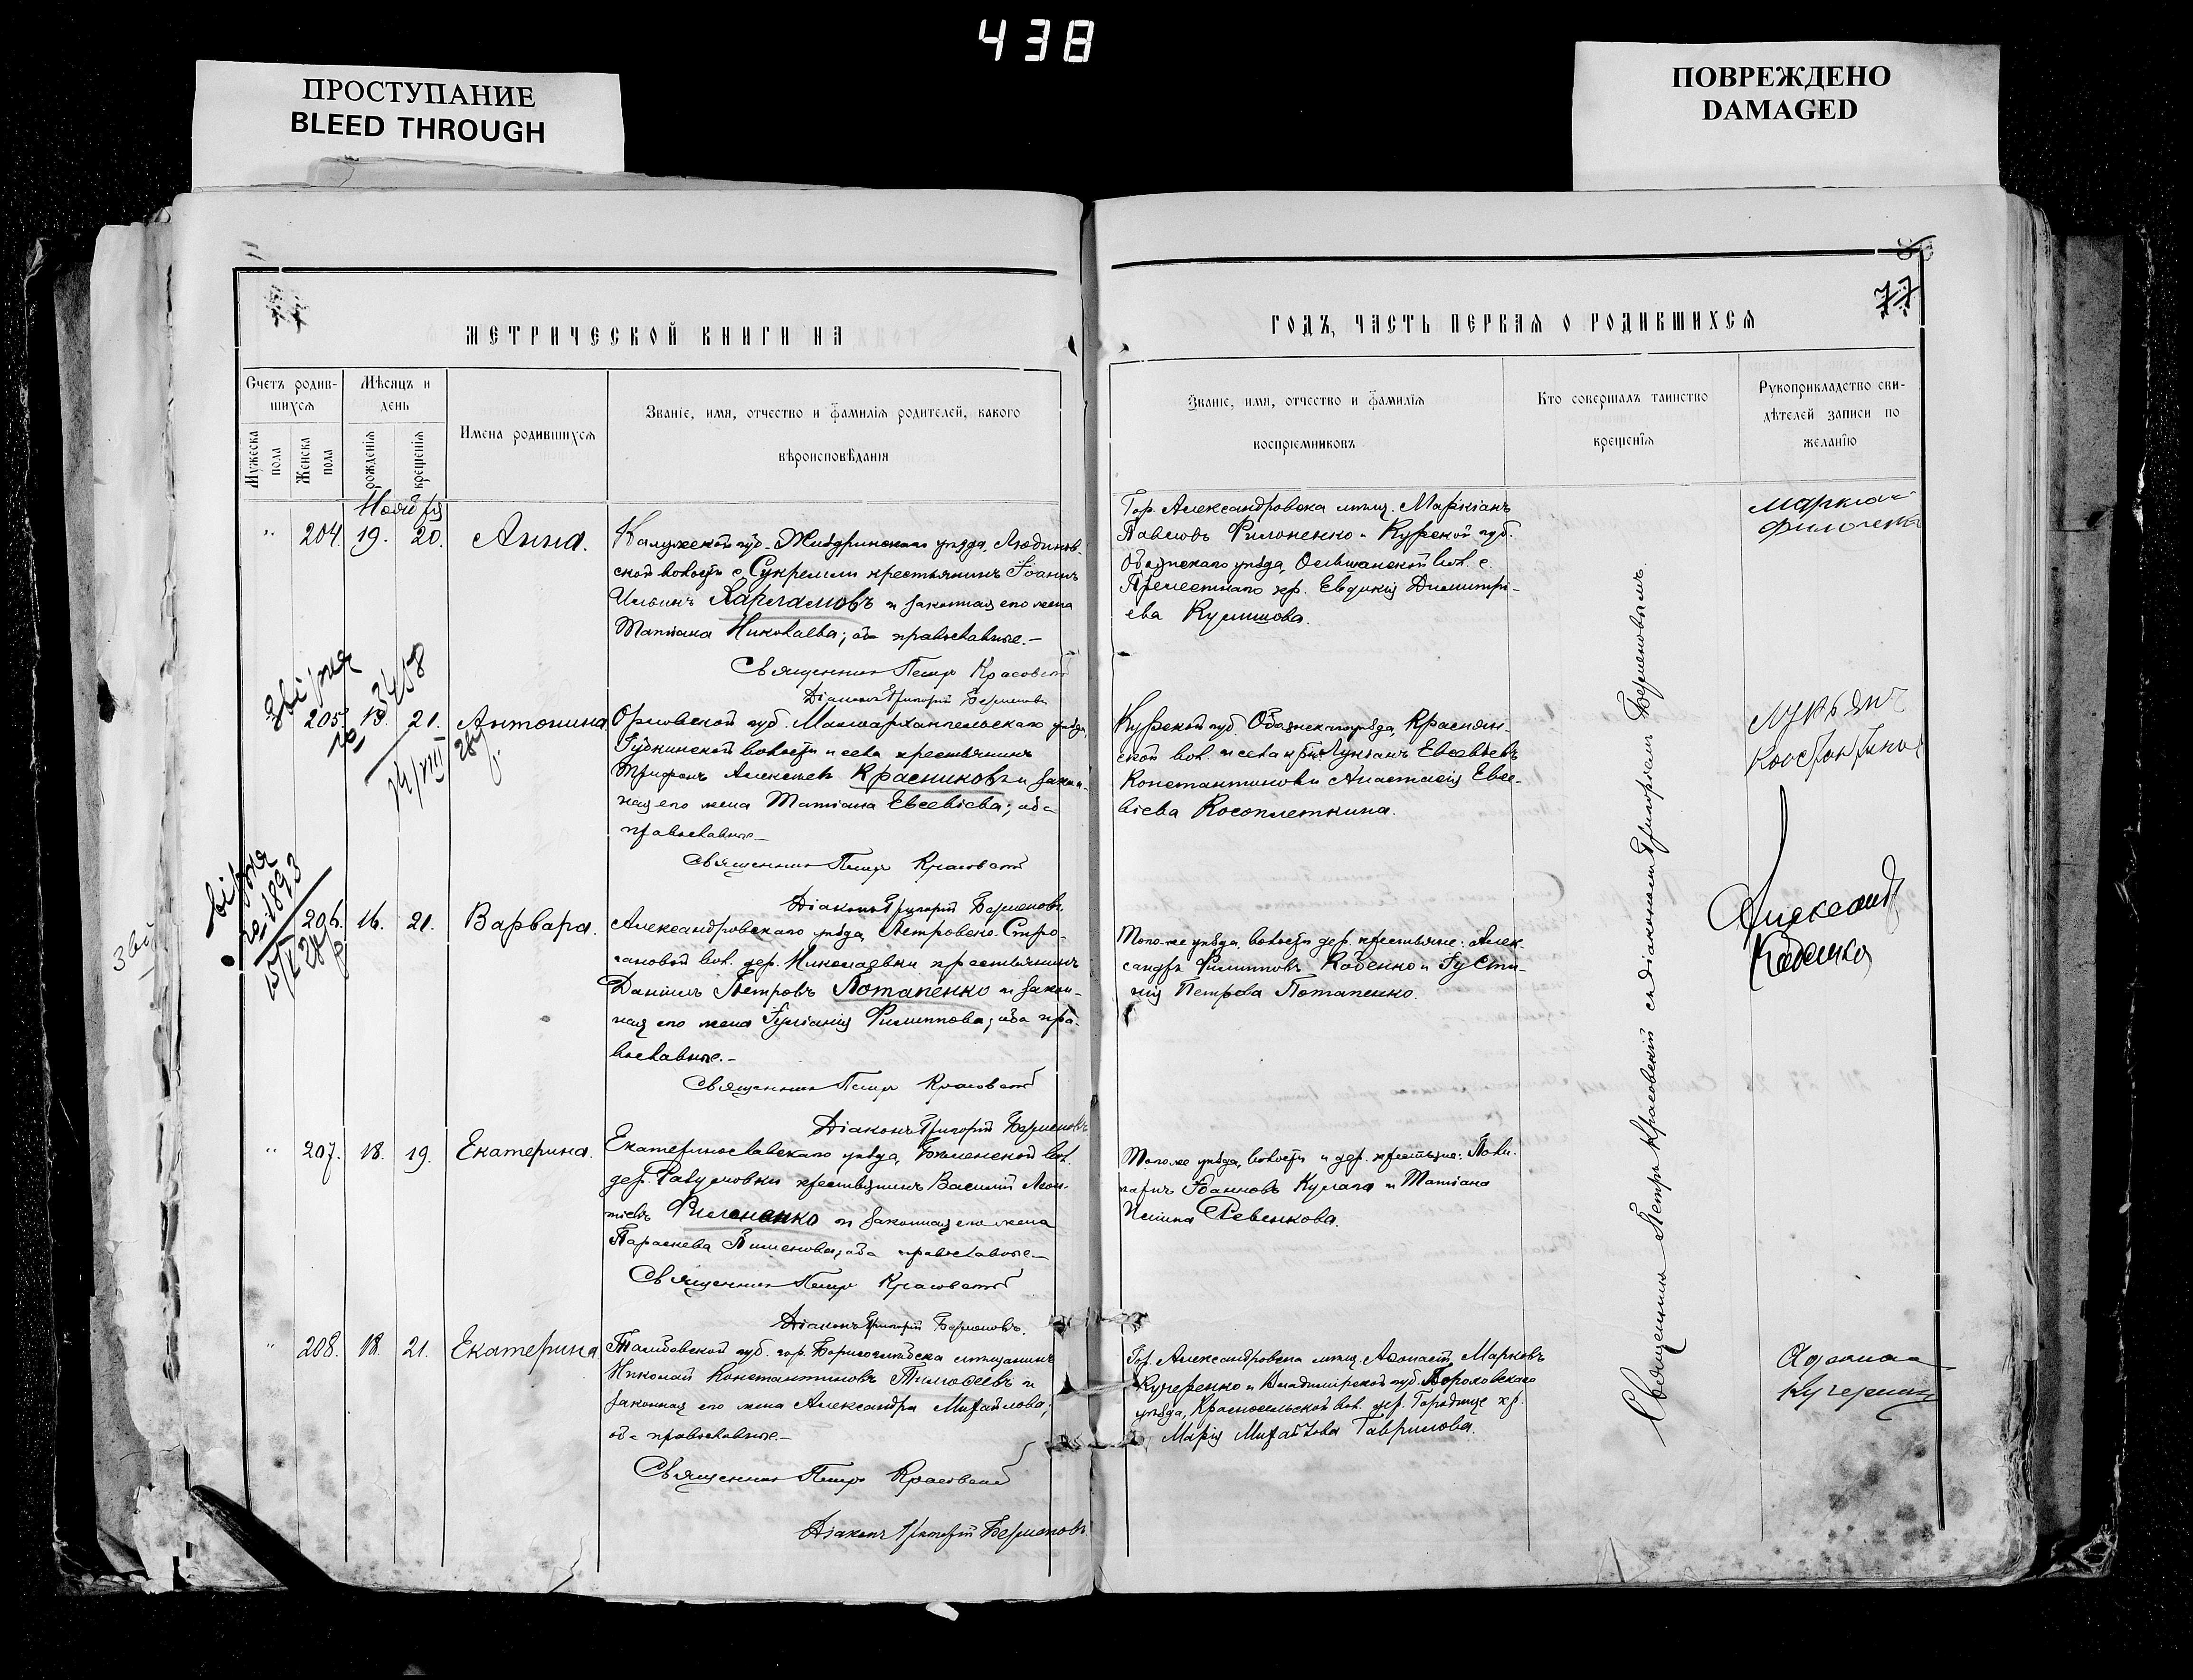 438
ПРОСТУПАНИЕ
BLEED THROUGH
ПОВРЕЖДЕНО
DAMAGED
77
МЕТРИЧЕСКОЙ КНИГИ НА
ГОДЪ, ЧАСТЬ ПЕРВАЯ О РОДИВШИХСЯ
Счетъ родив-
шихся
Мѣсяцъ и
день
Мужеска
пола
Женска
пола
рожденія
крещенія
Имена родившихся
Званіе, имя, отчество и фамилія родителей, какого
вѣроисповѣданія
Званіе, имя, отчество и фамилія
воспріемниковъ
Кто совершалъ таинство
крещенія
Рукоприкладство сви-
дѣтелей записи по
желанію
Ноября
" 204. 19. 20. Анна.
Калужской губ. Жиздринскаго уѣзда, Людинов-
ской волости с. Сукремли крестьянинъ Іоаннъ
Ильинъ Варламовъ и законная его жена
Татіана Николаева; оба православные.-
Священникъ Петръ Красовскій
Діаконъ Григорій Берменовъ
Гор. Александровска мѣщ. Маркіанъ
Павловъ Филоненко и Курской губ.
Обоянскаго уѣзда, Ольшанской вол. с.
Прелестнаго кр. Евдокія Димитрі-
ева Кулишова.
205. 19. 21. Антонина
Орловской губ. Малоархангельскаго уѣзда,
Губкинской волости и села крестьянинъ
Трифонъ Алексѣевъ Красниковъ и закон-
ная его жена Татіана Евсевіева; оба
православные-
Священникъ Петръ Красовскій
Діаконъ Григорій Берменовъ
Курской губ. Обоянскаго уѣзда, Краснян-
ской вол. и села кр. Лукіанъ Евсевіевъ
Константиновъ и Анастасія Евсе-
віева Косоплеткина.
206. 16. 21. Варвара.
Александровскаго уѣзда, Петровско-
вол. дер. Николаевки крестьянинъ
Даніилъ Петровъ Потапенко и закон-
ная его жена Іуліанія Филиппова; оба пра-
вославные.-
Священникъ Петръ Красовскій
Діаконъ Григорій Берменовъ
Того-же уѣзда, волости и дер. крестьяне: Алек-
сандръ Филипповъ Кабенко и Іусти-
нія Петрова Потапенко.
" 207. 18. 19. Екатерина.
Екатеринославскаго уѣзда, вол.
дер. крестьянинъ Василій Леон-
тіевъ Филоненко и законная его жена
Параскева Пименова; оба православные.-
Священникъ Петръ Красовскій
Діаконъ Григорій Берменовъ.
Того-же уѣзда, волости и дер. крестьяне: Поли-
карпъ Іоанновъ Кулага и Татіана
Ильина Ревенкова.
" 208. 18. 21. Екатерина
Тамбовской губ. гор. Борисоглѣбска мѣщанинъ
Николай Константиновъ Тимофеевъ и
законная его жена Александра Михайлова;
оба православные.-
Священникъ Петръ Красовскій
Діаконъ Григорій Берменовъ
Гор. Александровска мѣщ. Марковъ
Кучеренко и Владимірской губ. Гороховскаго
уѣзда, Красносельской вол. дер. Городище кр.
Марія Михайлова Гаврилова.
Священникъ Петръ Красовскій съ діакономъ Григоріемъ Берменовымъ